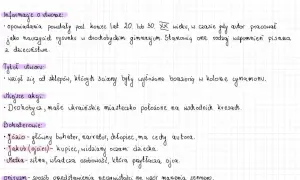 Informacje o utworze:
• opowiadania powstały pod koniec lat 20. lub 30. XX wieku, w czasie gdy autor pracował
jako nauczyciel rysunku w drohobyckim gimnazjum. Stanowią one rodzaj wspomnień pisarza
z dzieciństwa.
Tytuł utworu
• wziął się od sklepów, których ściany były wyłożone boazerią w kolorze cynamonu.
Miejsce akcji:
• Drohobycz, małe ukraińskie miasteczko położone na wschodnich kresach.
Bohaterowie:
• Józio - główny bohater, narrator, chłopiec, ma cechy autora.
• Jakub (ojciec) - kupiec, widziany oczami dziecka.
• silna, władcza osobowość, która
oniryzm - sposób przedstawienia rzeczywistości na wzór marzenia sennego.